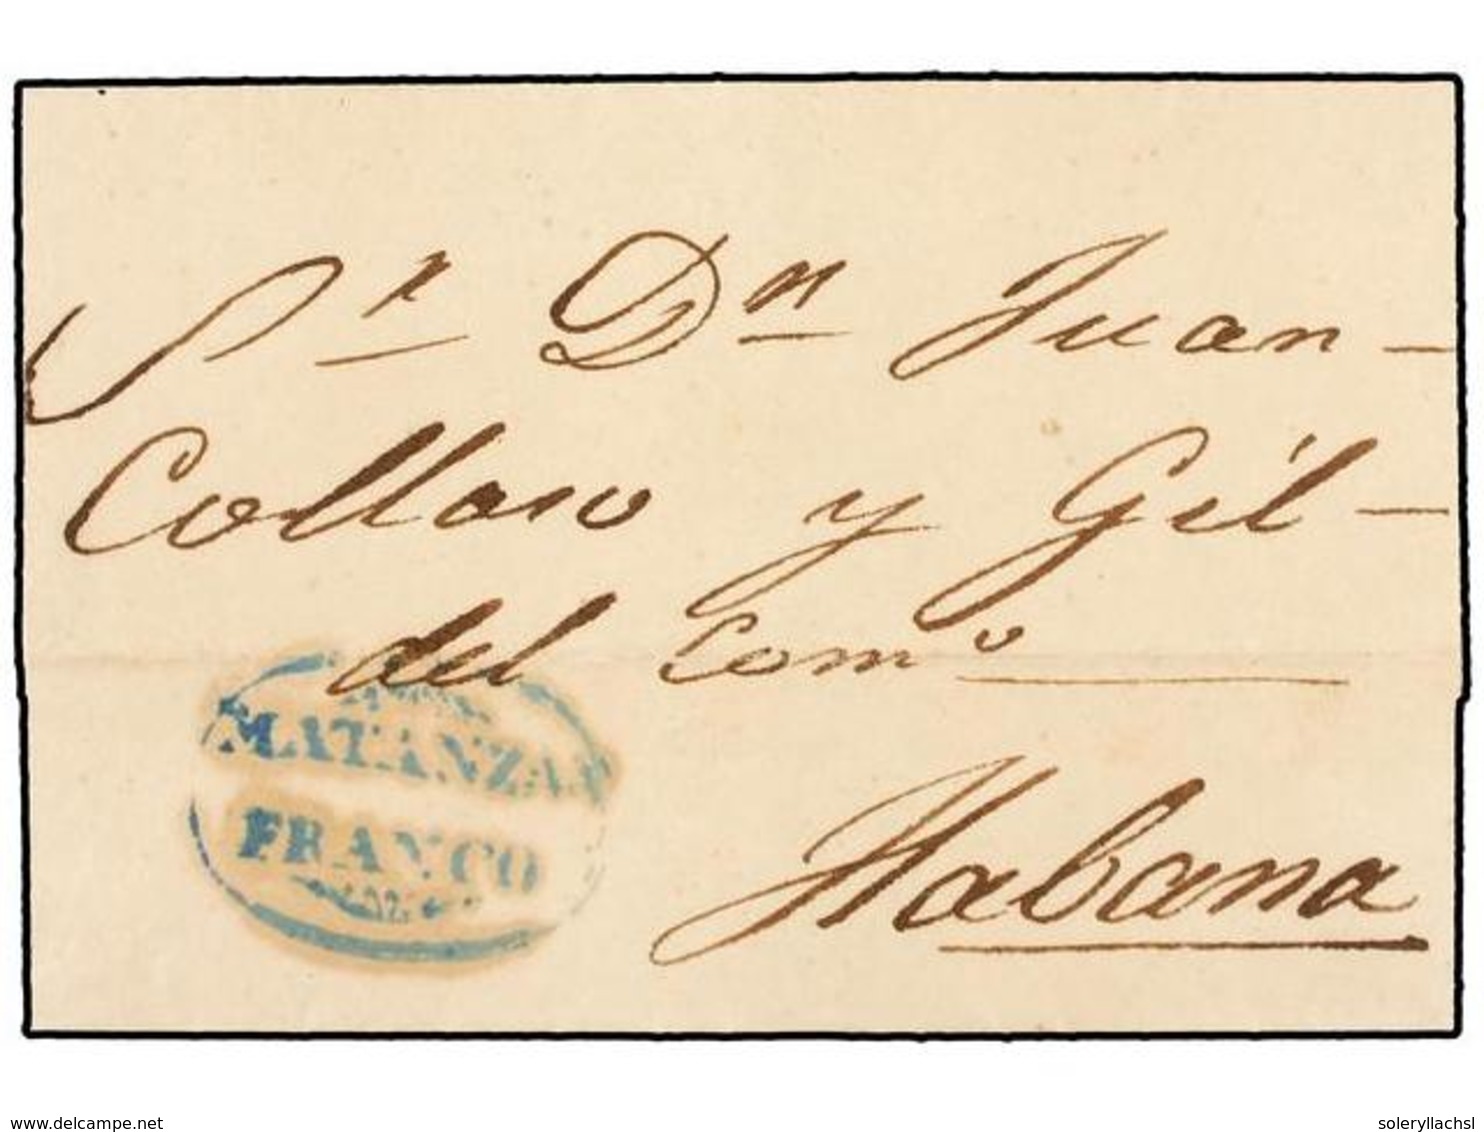 Sr. Dn. Juan -
Collaso y Gil -
del Como
MATANZAS
FRANCO
Habana
www.delcampe.net
soleryllachsl